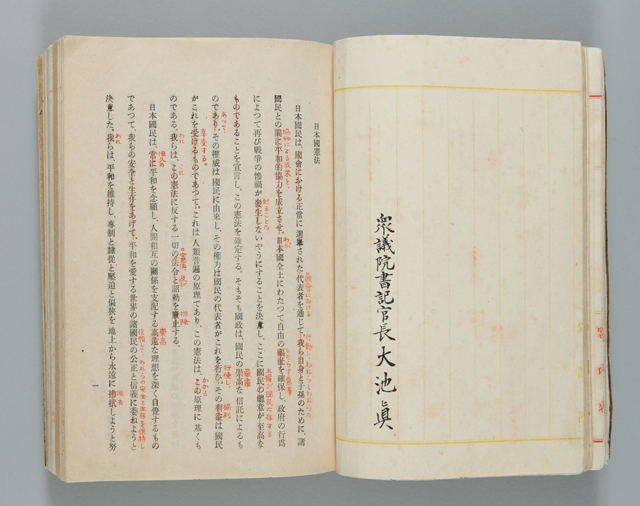 衆議院書記官長大池眞
日本國憲法
日本國民は、國會における正當に選擧された代表者を通じて、我ら自身と子孫のために、諸
國民との間に平和的協力を成立させ、日本國全土にわたつて自由の福祉を確保し、政府の行爲
協和による成果と、
によつて再び戰爭の慘禍が發生しないやうにすることを決意し、ここに國民の總意が至高な
主權が國民に存する
ものであることを宣言し、この憲法を確定する。そもそも國政は、國民の崇高な信託によるも
嚴肅
のであり、その權威は國民に由來し、その權力は國民の代表者がこれを行ひ、その利益は國民
あつて
行使し、
福利
がこれを受けるものであつて、これは人類普遍の原理であり、この憲法は、この原理に基くも
享受する。
かかる
のである。我らは、この憲法に反する一切の法令と詔勅を廢止する。
われ
これ
排除
日本國民は、常に平和を念願し、人間相互の關係を支配する高遠な理想を深く自覺するもの
恒久の
崇高
であつて、我らの安全と生存をあげて、平和を愛する世界の諸國民の公正と信義に委ねようと
決意した。我らは、平和を維持し、專制と隷從と壓迫と偏狹を地上から永遠に拂拭しようと努
われ
一